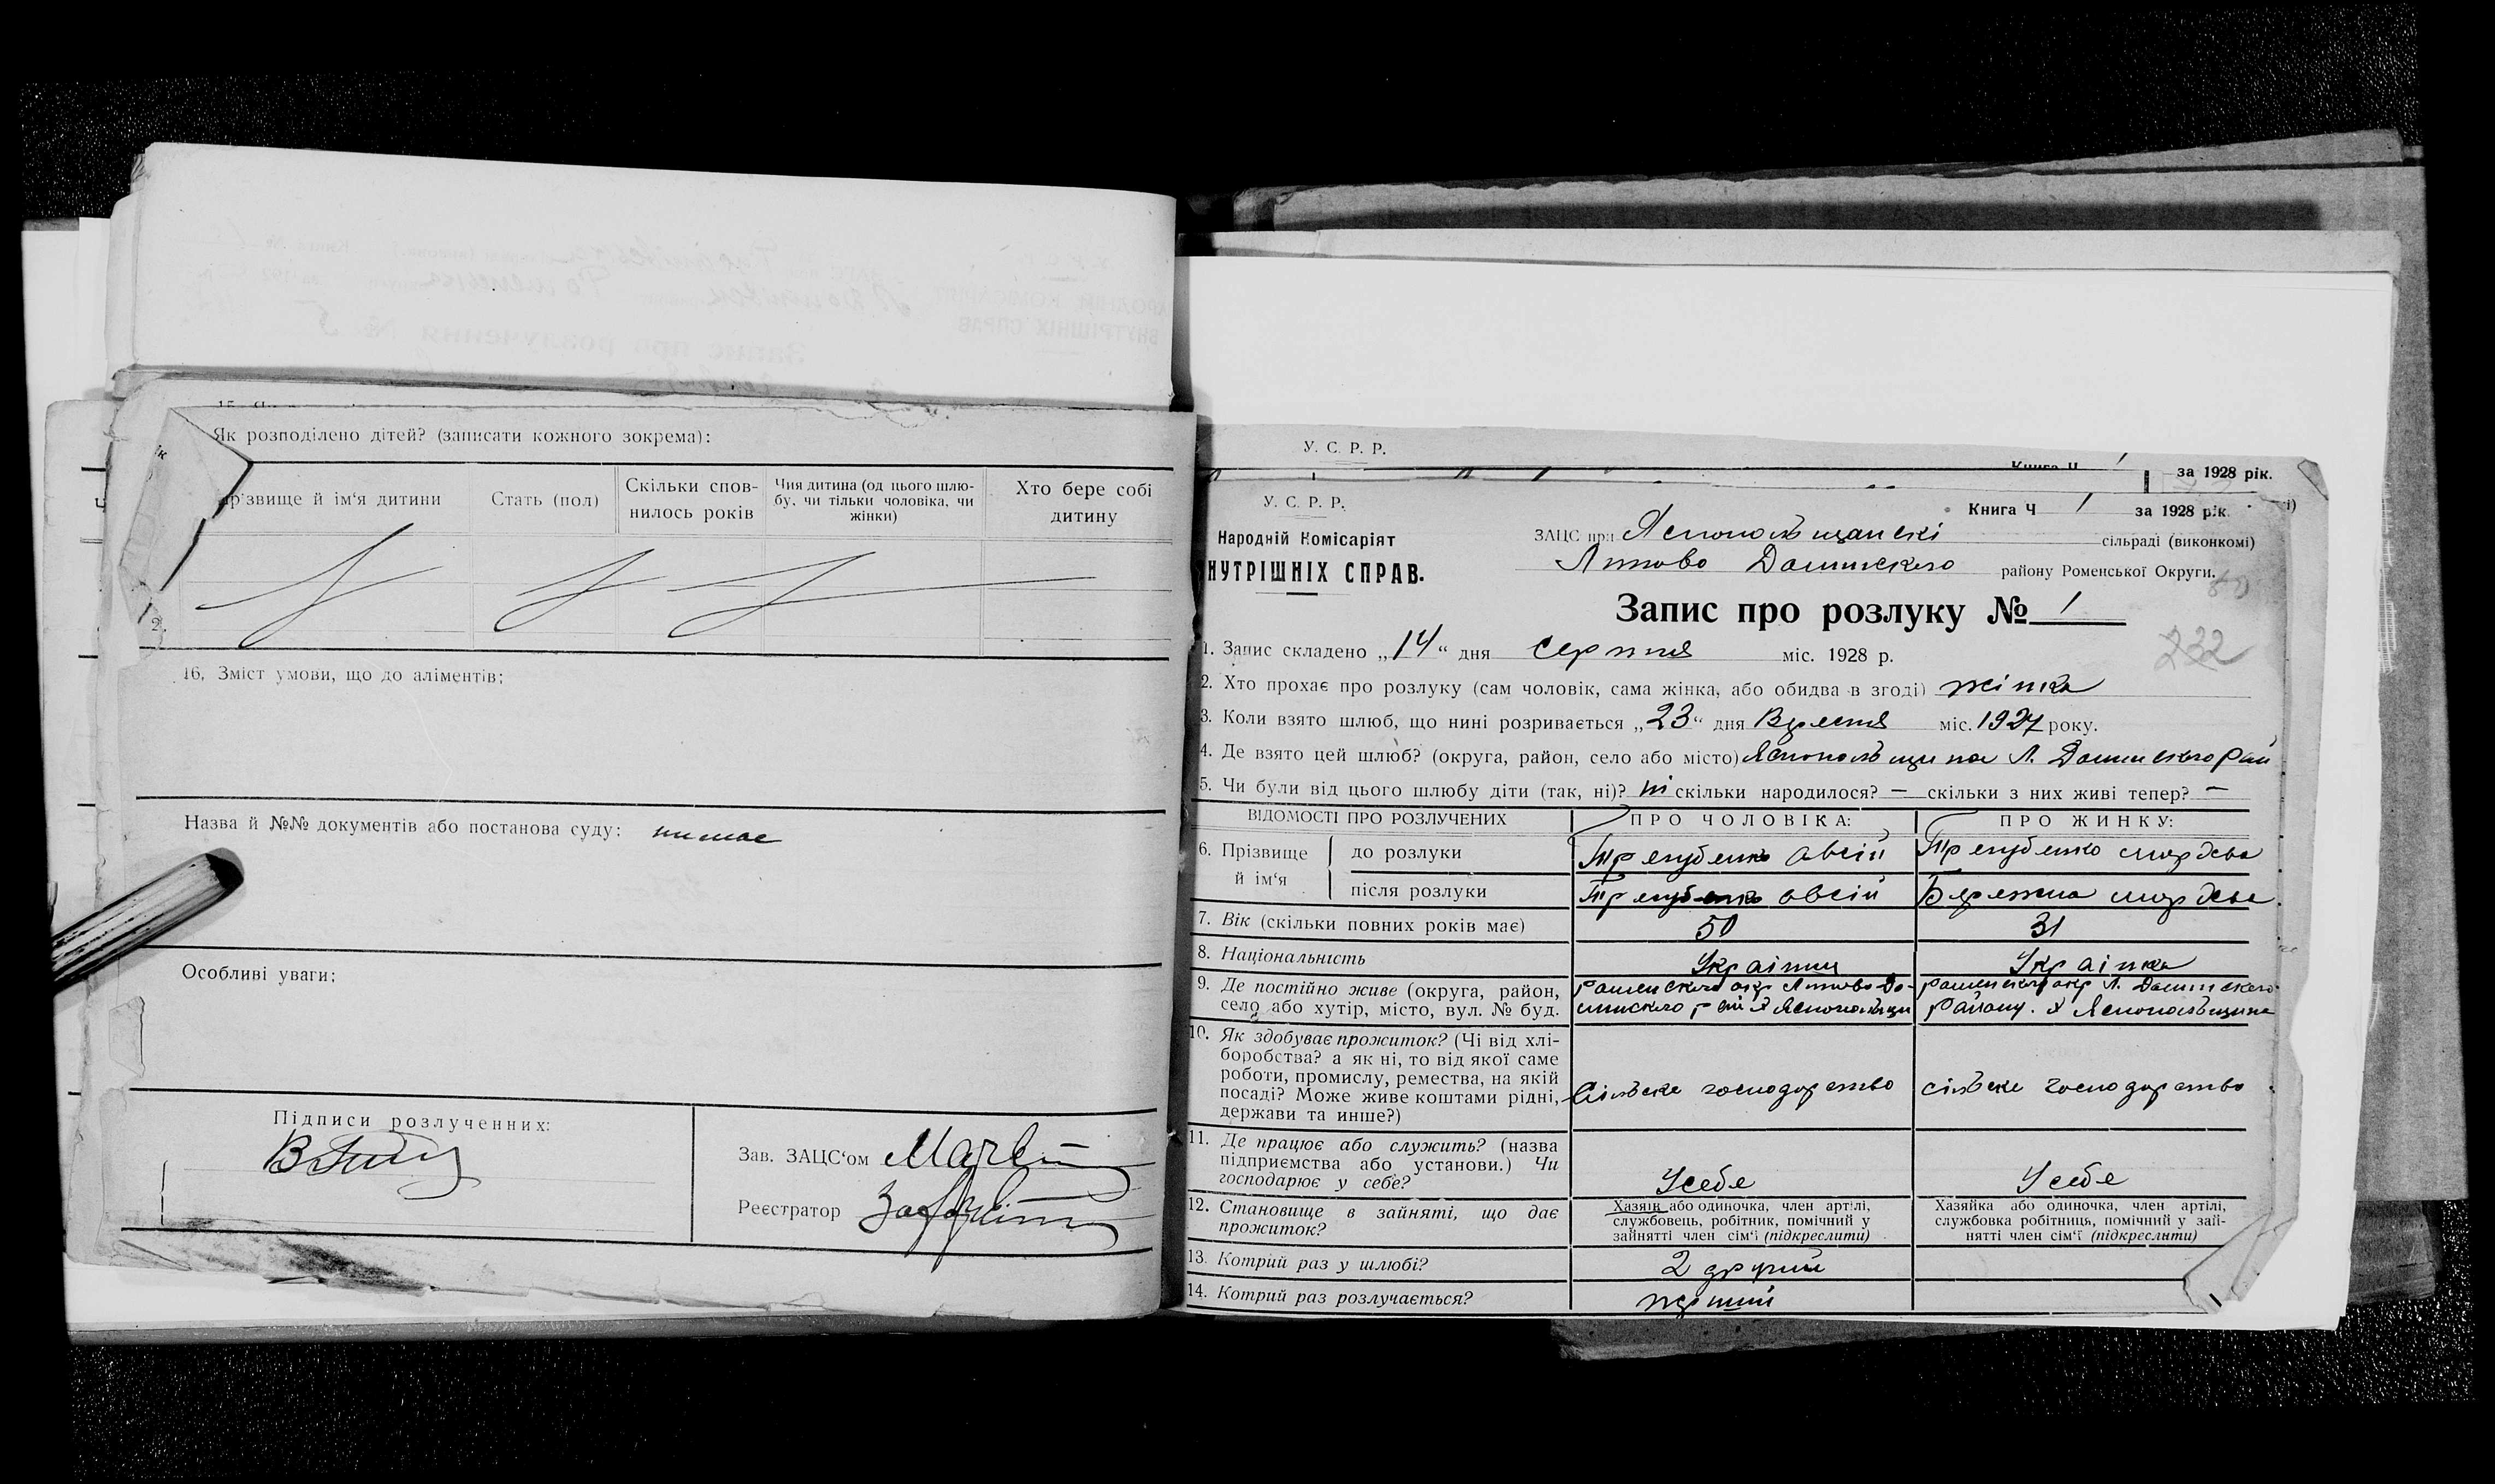 Як розподілено дітей? (записати кожного зокрема):
прізвище й ім'я дитини
Стать (пол)
Скільки спов-
нилось років
Чия дитина (од цього шлю-
бу, чи тільки чоловіка, чи
жінки)
Хто бере собі
дитину
2.
16. Зміст умови, що до аліментів:
Назва й №№ документів або постанова суду: немає
Особливі уваги:
Підписи розлученних:
Зав. ЗАЦС'ом
Реєстратор
У. С. Р. Р.
Книга Ч 1 за 1928 рік.
У. С. Р. Р.
Книга Ч 1 за 1928 рік.
Народній Комісаріят
НУТРІШНІХ СПРАВ.
ЗАЦС при Яснопольщанскі сільраді (виконкомі)
Липово Долинского району Роменської Округи.
Запис про розлуку № 1
232
1. Запис складено „14“ дня серпня міс. 1928 р.
2. Хто прохає про розлуку (сам чоловік, сама жінка, або обидва в згоді) жінка
3. Коли взято шлюб, що нині розривається „23“ дня Вересня міс. 1927 року.
4. Де взято цей шлюб? (округа, район, село або місто) Яснопольщина Л. Долинского рай
5. Чи були від цього шлюбу діти (так, ні)? ні скільки народилося? — скільки з них живі тепер? —
ВІДОМОСТІ ПРО РОЗЛУЧЕНИХ
ПРО ЧОЛОВІКА:
ПРО ЖИНКУ:
6. Прізвище й ім'я
до розлуки
Трегубенко Овсій
Трегубенко
після розлуки
Трегубенко Овсій
Бережна
7. Вік (скільки повних років має)
50
31
8. Національність
Українец
Украінка
9. Де постійно живе (округа, район,
село або хутір, місто, вул. № буд.
Роменского окр Липово До-
линского р х Яснопольщи
Роменского окр Л. Долинского
Району. х Яснопольщина
10. Як здобуває прожиток? (Чі від хлі-
боробства? а як ні, то від якої саме
роботи, промислу, ремества, на якій
посаді? Може живе коштами рідні,
держави та инше?)
Сільске господарство
сільске господарство
11. Де працює або служить? (назва
підприємства або установи.) Чи
господарює у себе?
Усебе
Усебе
12. Становище в зайняті, що дає
прожиток?
Хазяїн або одиночка, член артілі,
службовець, робітник, помічний у
зайнятті член сім'ї (підкреслити)
Хазяйка або одиночка, член артілі,
службовка робітниця, помічний у зай-
нятті член сім'ї (підкреслити)
13. Котрий раз у шлюбі?
2 другий
14. Котрий раз розлучається?
перший